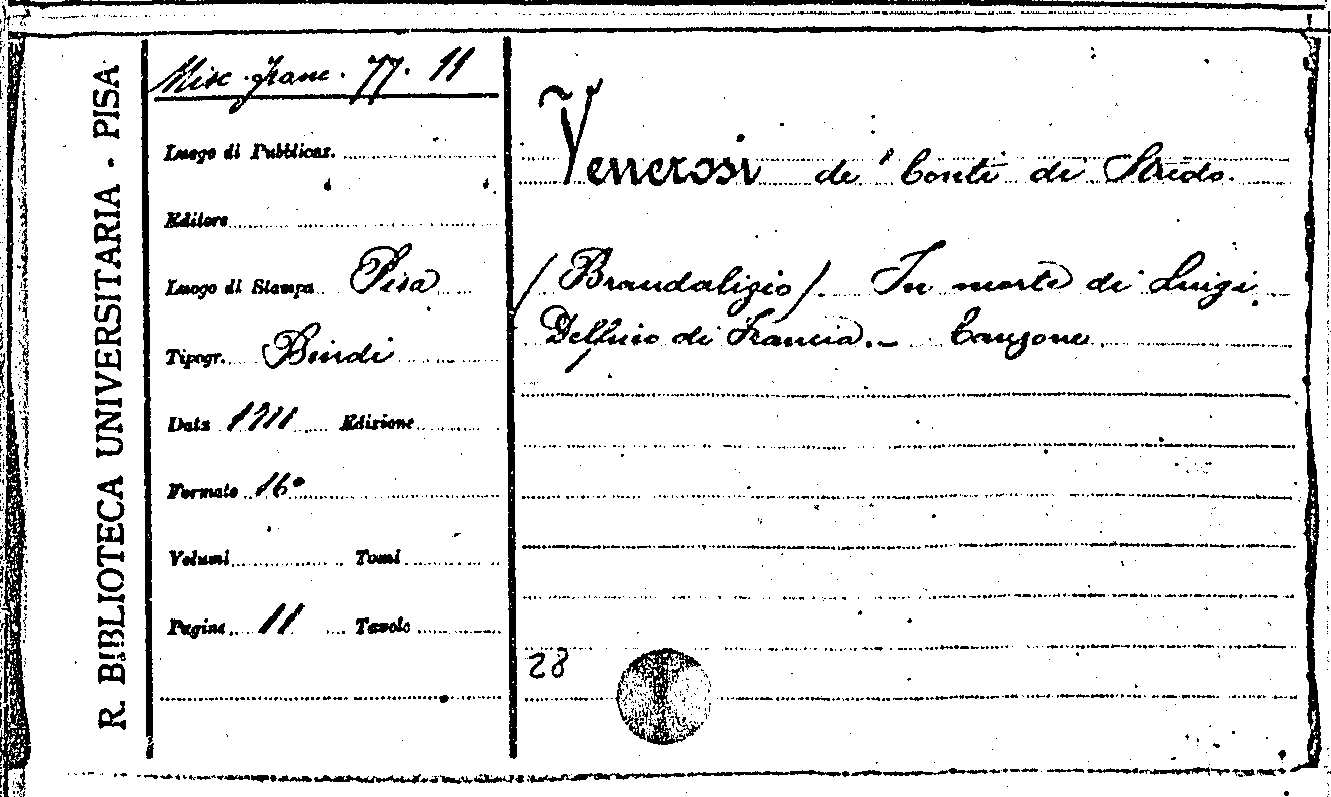 R. BIBLIOTECA UNIVERSITARIA - PISA
Misc. Franc. 77. 11
Luogo di Pubblicaz.
Editore
Luogo di Stampa Pisa
Tipogr. Bindi
Data 1711 Edizione
Formato 16°
Volumi Tomi
Pagine 11 Tavole
Venerosi de' Conti di Strido.
(Brandaligio). In morte di Luigi
Delfino di Francia. - Canzone
28